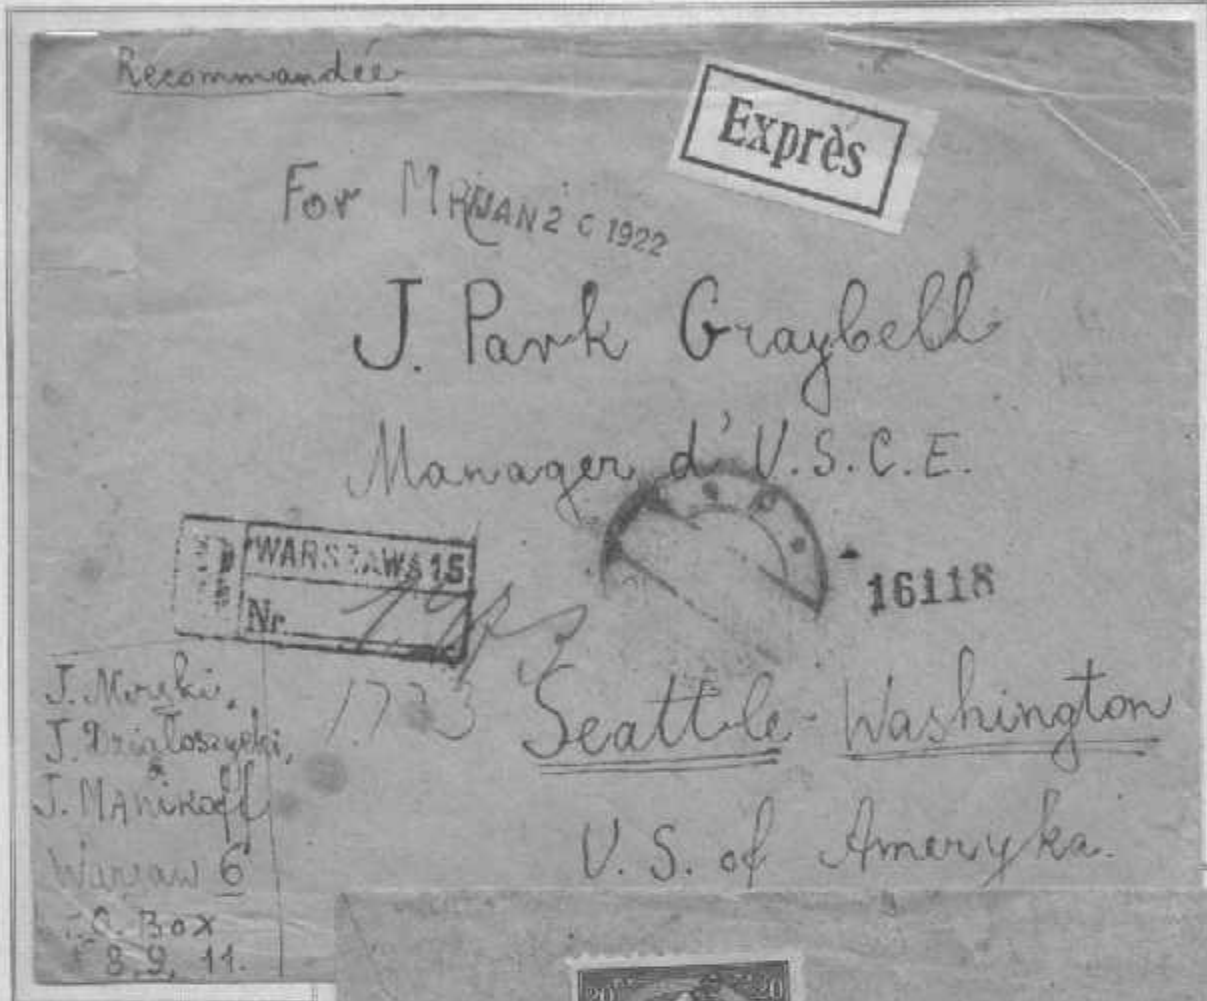 Recommandée
Exprès
For MR
JAN 2 1922
J. Park Graybell
Manager d'U.S.C.E.
WARSZAWA 15
Nr.
16118
1773
Seattle - Washington
U. S. of Ameryka.
J.
J. Działoszycki,
&
J. MANIKOFF
Warsaw 6
Box
8, 9, 11.
20 20